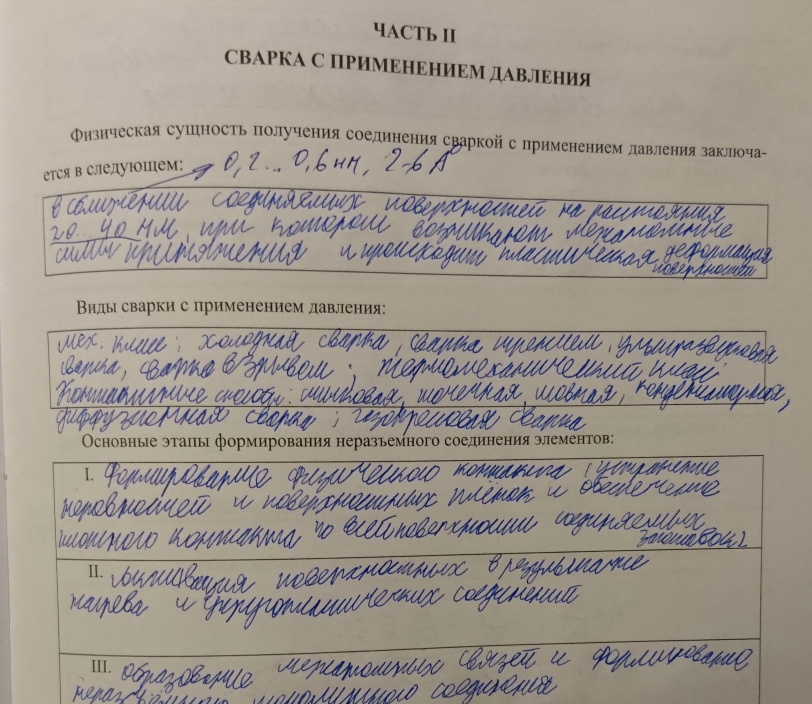 ЧАСТЬ II
СВАРКА С ПРИМЕНЕНИЕМ ДАВЛЕНИЯ
Физическая сущность получения соединения сваркой с применением давления заключа-
ется в следующем: 0,2... 0,6 нм, 2-6 A°
в сближении соединяемых поверхностей на расстояния
20...40 нм, при котором возникают межатомные
силы притяжения и происходит пластическая деформация
поверхностей
Виды сварки с применением давления:
мех. класс: холодная сварка, сварка трением, ультразвуковая
сварка, сварка взрывом; термомеханический класс:
Контактные способы: стыковая, точечная, шовная, конденсаторная,
диффузионная сварка; газопрессовая сварка
Основные этапы формирования неразъемного соединения элементов:
I. Формирование физического контакта, устранение
неровностей и поверхностных плёнок и обеспечение
плотного контакта по всей поверхности соединяемых
заготовок
II. Активация поверхностных в результате
нагрева и упругопластических соединений
III. образование межатомных связей и формирование
неразъёмного монолитного соединения